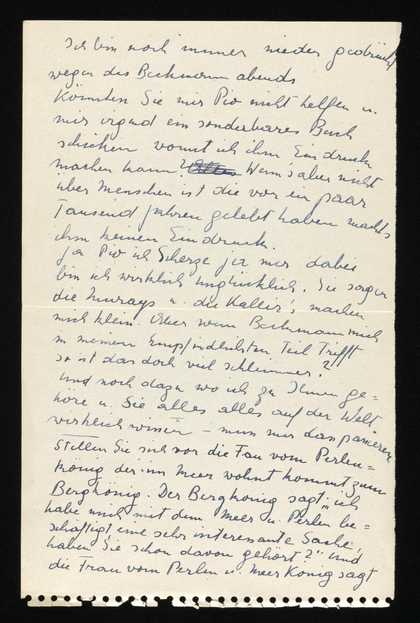 Ich bin noch immer nieder gedrückt
wegen des Beckmann abends
Könnten Sie mir Pio nicht helfen u.
mir irgend ein sonderbares Buch
schicken womit ich ihm Eindruck
machen kann? Wenn's aber nicht
über Menschen ist die vor ein paar
Tausend Jahren gelebt haben machts
ihm keinen Eindruck.
Ja Pio ich Scherze ja nur dabei
bin ich wirklich unglücklich. Sie sagen
die Murays u. die Kaller's, machen
mich klein. Aber wenn Beckmann mich
in meinem Empfindlichsten Teil Trifft
so ist das doch viel schlimmer?
Und noch dazu wo ich zu Ihnen ge-
höre u. Sie alles alles auf der Welt
wirklich wissen – muss mir das passieren
Stellen Sie sich vor die Frau vom Perlen-
könig der im Meer wohnt kommt zum
Bergkönig. Der Bergkönig sagt "ich
habe mich mit dem Meer u. Perlen be-
schäftigt, eine sehr interessante Sache,
haben Sie schon davon gehört?" Und
die Frau vom Perlen u. Meer König sagt